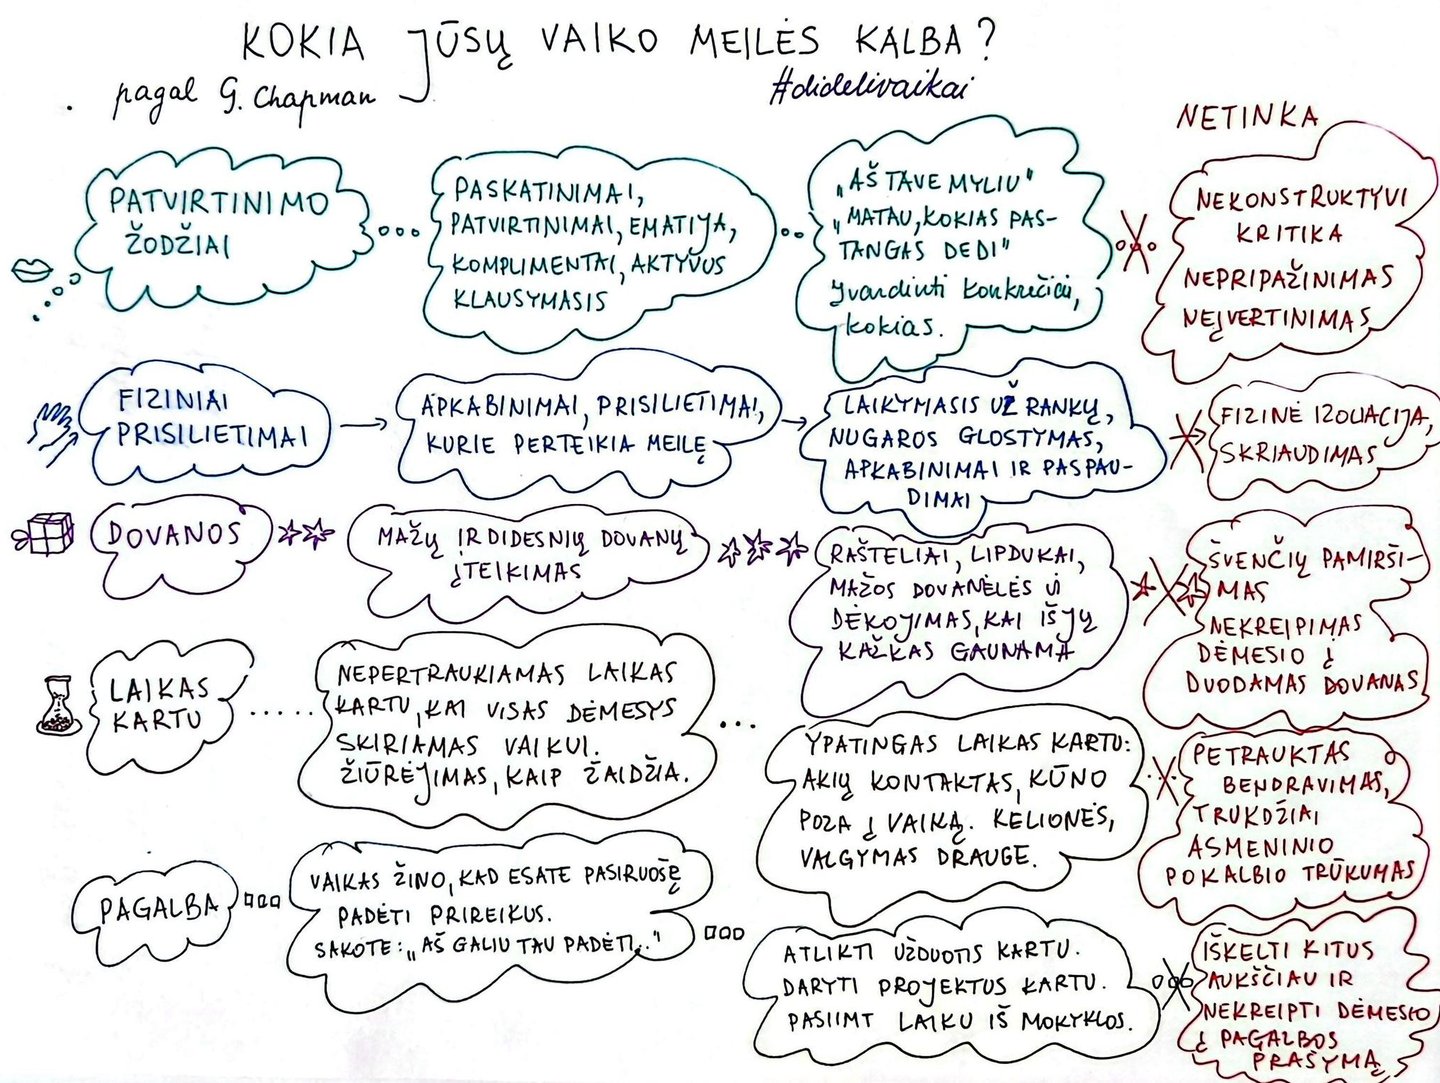 KOKIA JŪSŲ VAIKO MEILĖS KALBA?
pagal G. Chapman
#didelivaikai
NETINKA
PATVIRTINIMO
ŽODŽIAI
PASKATINIMAI,
PATVIRTINIMAI, EMATIJA,
KOMPLIMENTAI, AKTYVUS
KLAUSYMASIS
„AŠ TAVE MYLIU"
„MATAU, KOKIAS PAS-
TANGAS DEDI"
Įvardinti konkrečiai,
kokias.
NEKONSTRUKTYVI
KRITIKA
NEPRIPAŽINIMAS
NEĮVERTINIMAS
FIZINIAI
PRISILIETIMAI
APKABINIMAI, PRISILIETIMAI,
KURIE PERTEIKIA MEILĘ
LAIKYMASIS UŽ RANKŲ,
NUGAROS GLOSTYMAS,
APKABINIMAI IR PASPAU-
DIMAI
FIZINĖ IZOLIACIJA,
SKRIAUDIMAS
DOVANOS
MAŽŲ IR DIDESNIŲ DOVANŲ
ĮTEIKIMAS
RAŠTELIAI, LIPDUKAI,
MAŽOS DOVANĖLĖS
DĖKOJIMAS, KAI IŠ JŲ
KAŽKAS GAUNAMA
ŠVENČIŲ PAMIRŠI-
MAS
NEKREIPIMAS
DĖMESIO Į
DUODAMAS DOVANAS
LAIKAS
KARTU
NEPERTRAUKIAMAS LAIKAS
KARTU, KAI VISAS DĖMESYS
SKIRIAMAS VAIKUI.
ŽIŪRĖJIMAS, KAIP ŽAIDŽIA.
YPATINGAS LAIKAS KARTU:
AKIŲ KONTAKTAS, KŪNO
POZA Į VAIKĄ. KELIONĖS,
VALGYMAS DRAUGE.
PETRAUKTAS
BENDRAVIMAS,
TRUKDŽIAI
ASMENINIO
POKALBIO TRŪKUMAS
PAGALBA
VAIKAS ŽINO, KAD ESATE PASIRUOŠĘ
PADĖTI PRIREIKUS.
SAKOTE: „AŠ GALIU TAU PADĖTI.."
ATLIKTI UŽDUOTIS KARTU.
DARYTI PROJEKTUS KARTU.
PASIIMT LAIKU IŠ MOKYKLOS.
IŠKELTI KITUS
AUKŠČIAU IR
NEKREIPTI DĖMESIO
Į PAGALBOS
PRAŠYMĄ